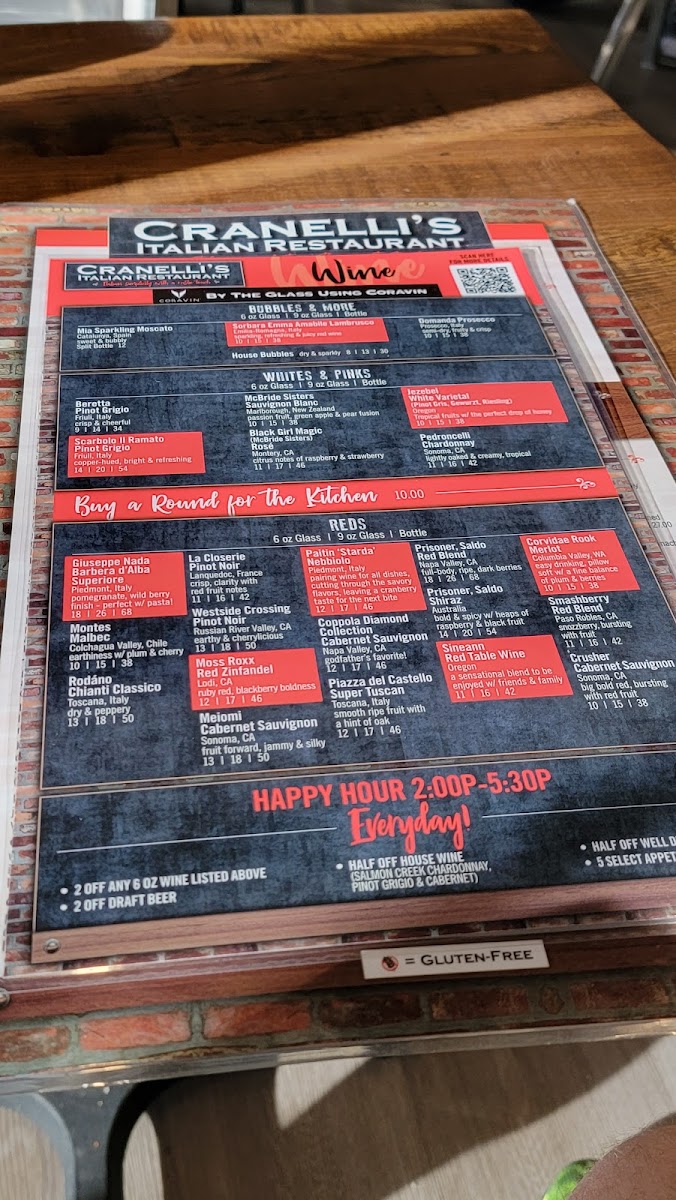 CRANELLI'S
ITALIAN RESTAURANT
CRANELLI'S
ITALIAN RESTAURANT
Wine
SCAN HERE
FOR MORE DETAILS
CORAVIN
BY THE GLASS USING CORAVIN
BUBBLES & MORE
6 oz Glass | 9 oz Glass | Bottle
Mia Sparkling Moscato
Catalunya, Spain
sweet & bubbly
Split Bottle 12
Sorbara Emma Amabile Lambrusco
Emilia-Romagna, Italy
sparkling, refreshing & juicy red wine
10 | 15 | 38
Domanda Prosecco
Prosecco, Italy
semi-dry, fruity & crisp
10 | 15 | 38
House Bubbles dry & sparkly 8 | 13 | 30
WHITES & PINKS
6 oz Glass | 9 oz Glass | Bottle
Beretta
Pinot Grigio
Friuli, Italy
crisp & cheerful
9 | 14 | 34
Scarbolo Il Ramato
Pinot Grigio
Friuli, Italy
copper-hued, bright & refreshing
14 | 20 | 54
McBride Sisters
Sauvignon Blanc
Marlborough, New Zealand
passion fruit, green apple & pear fusion
10 | 15 | 38
Black Girl Magic
(McBride Sisters)
Rosé
Montery, CA
citrus notes of raspberry & strawberry
11 | 17 | 46
Jezebel
White Varietal
(Pinot Gris, Gewurzt, Riesling)
Oregon
Tropical fruits w/ the perfect drop of honey
10 | 15 | 38
Pedroncelli
Chardonnay
Sonoma, CA
lightly oaked & creamy, tropical
11 | 16 | 42
Buy a Round for the Kitchen 10.00
REDS
6 oz Glass | 9 oz Glass | Bottle
Giuseppe Nada
Barbera d'Alba
Superiore
Piedmont, Italy
pomegranate, wild berry
finish – perfect w/ pasta!
18 | 26 | 68
Montes
Malbec
Colchagua Valley, Chile
earthiness w/ plum & cherry
10 | 15 | 38
Rodáno
Chianti Classico
Toscana, Italy
dry & peppery
13 | 18 | 50
La Closerie
Pinot Noir
Lanquedoc, France
crisp, clarity with
red fruit notes
11 | 16 | 42
Westside Crossing
Pinot Noir
Russian River Valley, CA
earthy & cherrylicious
13 | 18 | 50
Moss Roxx
Red Zinfandel
Lodi, CA
ruby red, blackberry boldness
12 | 17 | 46
Meiomi
Cabernet Sauvignon
Sonoma, CA
fruit forward, jammy & silky
13 | 18 | 50
Paitin 'Starda'
Nebbiolo
Piedmont, Italy
pairing wine for all dishes,
cutting through the savory
flavors, leaving a cranberry
taste for the next bite
12 | 17 | 46
Coppola Diamond
Collection
Cabernet Sauvignon
Napa Valley, CA
godfather's favorite!
12 | 17 | 46
Piazza del Castello
Super Tuscan
Toscana, Italy
smooth ripe fruit with
a hint of oak
12 | 17 | 46
Prisoner, Saldo
Red Blend
Napa Valley, CA
full-body, ripe, dark berries
18 | 26 | 68
Prisoner, Saldo
Shiraz
Australia
bold & spicy w/ heaps of
raspberry & black fruit
14 | 20 | 54
Sineann
Red Table Wine
Oregon
a sensational blend to be
enjoyed w/ friends & family
11 | 16 | 42
Corvidae Rook
Merlot
Columbia Valley, WA
easy drinking, pillow
soft w/ a fine balance
of plum & berries
10 | 15 | 38
Smashberry
Red Blend
Paso Robles, CA
snozzberry, bursting
with fruit
11 | 16 | 42
Crusher
Cabernet Sauvignon
Sonoma, CA
big bold red, bursting
with red fruit
10 | 15 | 38
HAPPY HOUR 2:00P-5:30P
Everyday!
• 2 OFF ANY 6 OZ WINE LISTED ABOVE
• 2 OFF DRAFT BEER
• HALF OFF HOUSE WINE
(SALMON CREEK CHARDONNAY,
PINOT GRIGIO & CABERNET)
• HALF OFF WELL D
• 5 SELECT APPET
= GLUTEN-FREE
27.00